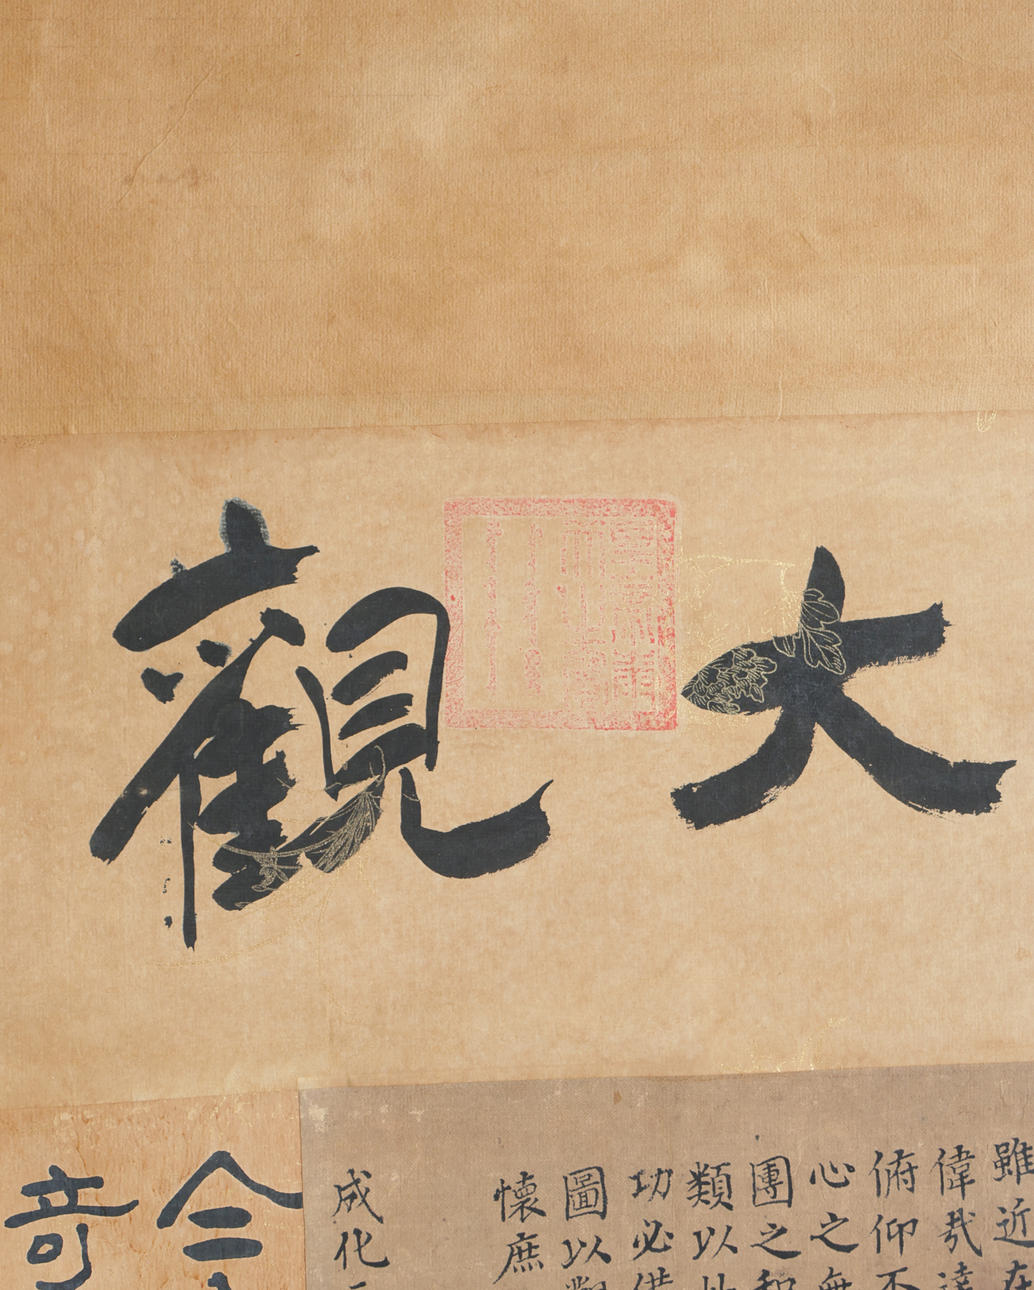 大觀
雖近在
偉哉達
俯仰不
心之無
團之和
類以此
功必備
圖以
懷庶
成化
奇